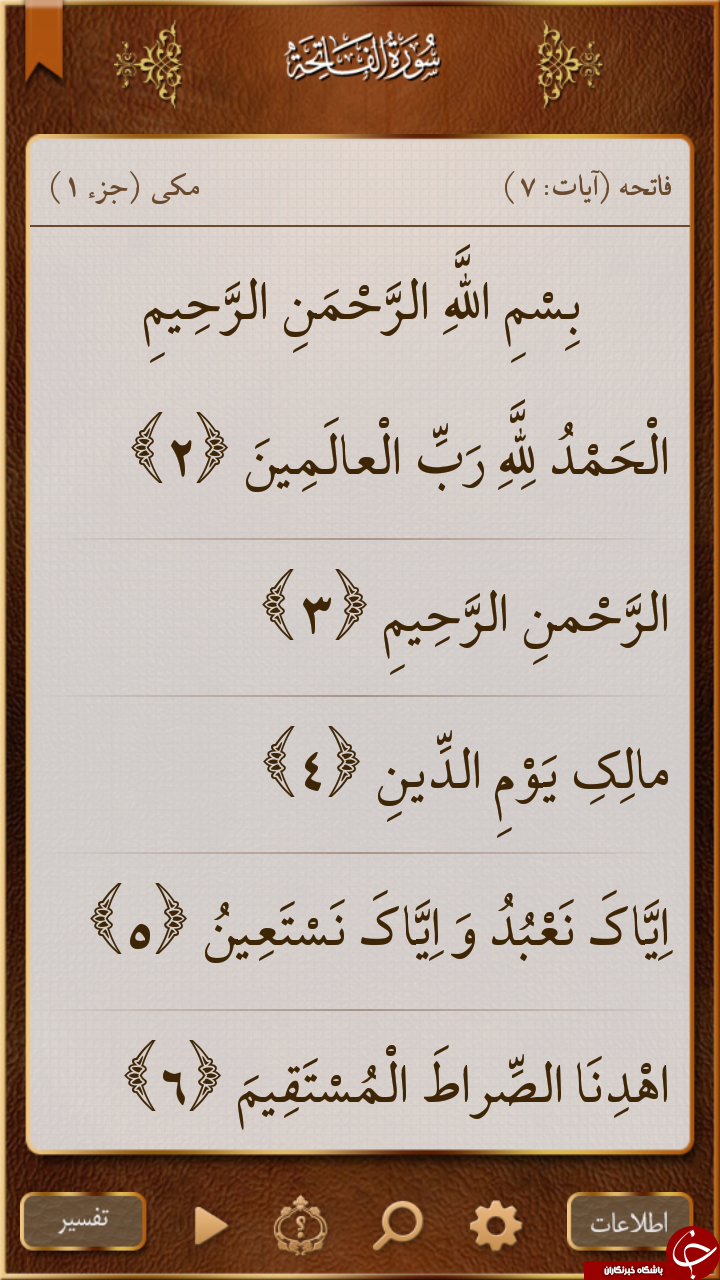 سُورَةُ الفَاتِحَةُ
فاتحه (آیات: ٧) مکی (جزء ١)
بِسْمِ اللَّهِ الرَّحْمَنِ الرَّحِیمِ
الْحَمْدُ لِلَّهِ رَبِّ الْعالَمِینَ ﴿٢﴾
الرَّحْمنِ الرَّحِیمِ ﴿٣﴾
مالِکِ یَوْمِ الدِّینِ ﴿٤﴾
اِیَّاکَ نَعْبُدُ وَ اِیَّاکَ نَسْتَعِینُ ﴿٥﴾
اهْدِنَا الصِّراطَ الْمُسْتَقِیمَ ﴿٦﴾
اطلاعات ؟ تفسیر
باشگاه خبرنگاران